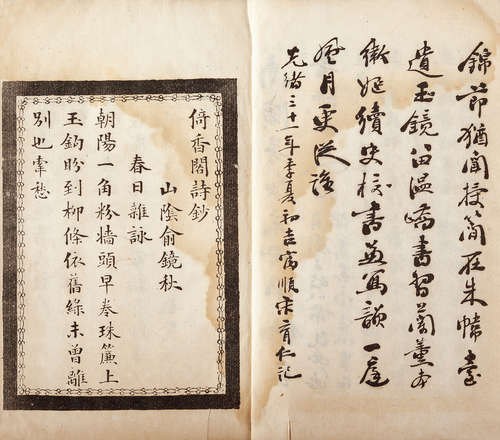 錦節猶聞授簡在朱幃臺
遺玉鏡留溫嶠書習蘭薰本
徽姬續史校書並寫韻一庭
風月更從誰
光緒三十一年季夏初吉富順宋育仁記
倚香閣詩鈔
山陰俞鏡秋
春日雜詠
朝陽一角粉墻頭早卷珠簾上
玉鈎盼到柳條依舊綠未曾離
別也牽愁